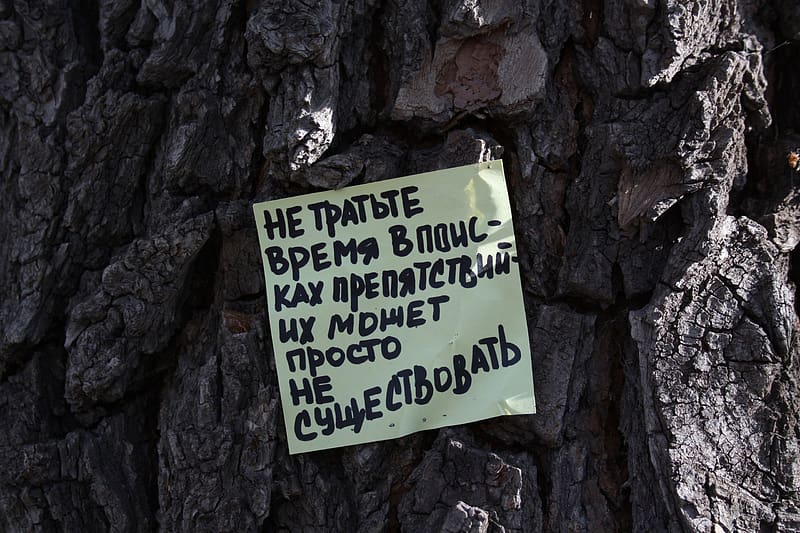 НЕ ТРАТЬТЕ
ВРЕМЯ В ПОИС-
КАХ ПРЕПЯТСТВИЙ-
ИХ МОЖЕТ
ПРОСТО
НЕ
СУЩЕСТВОВАТЬ